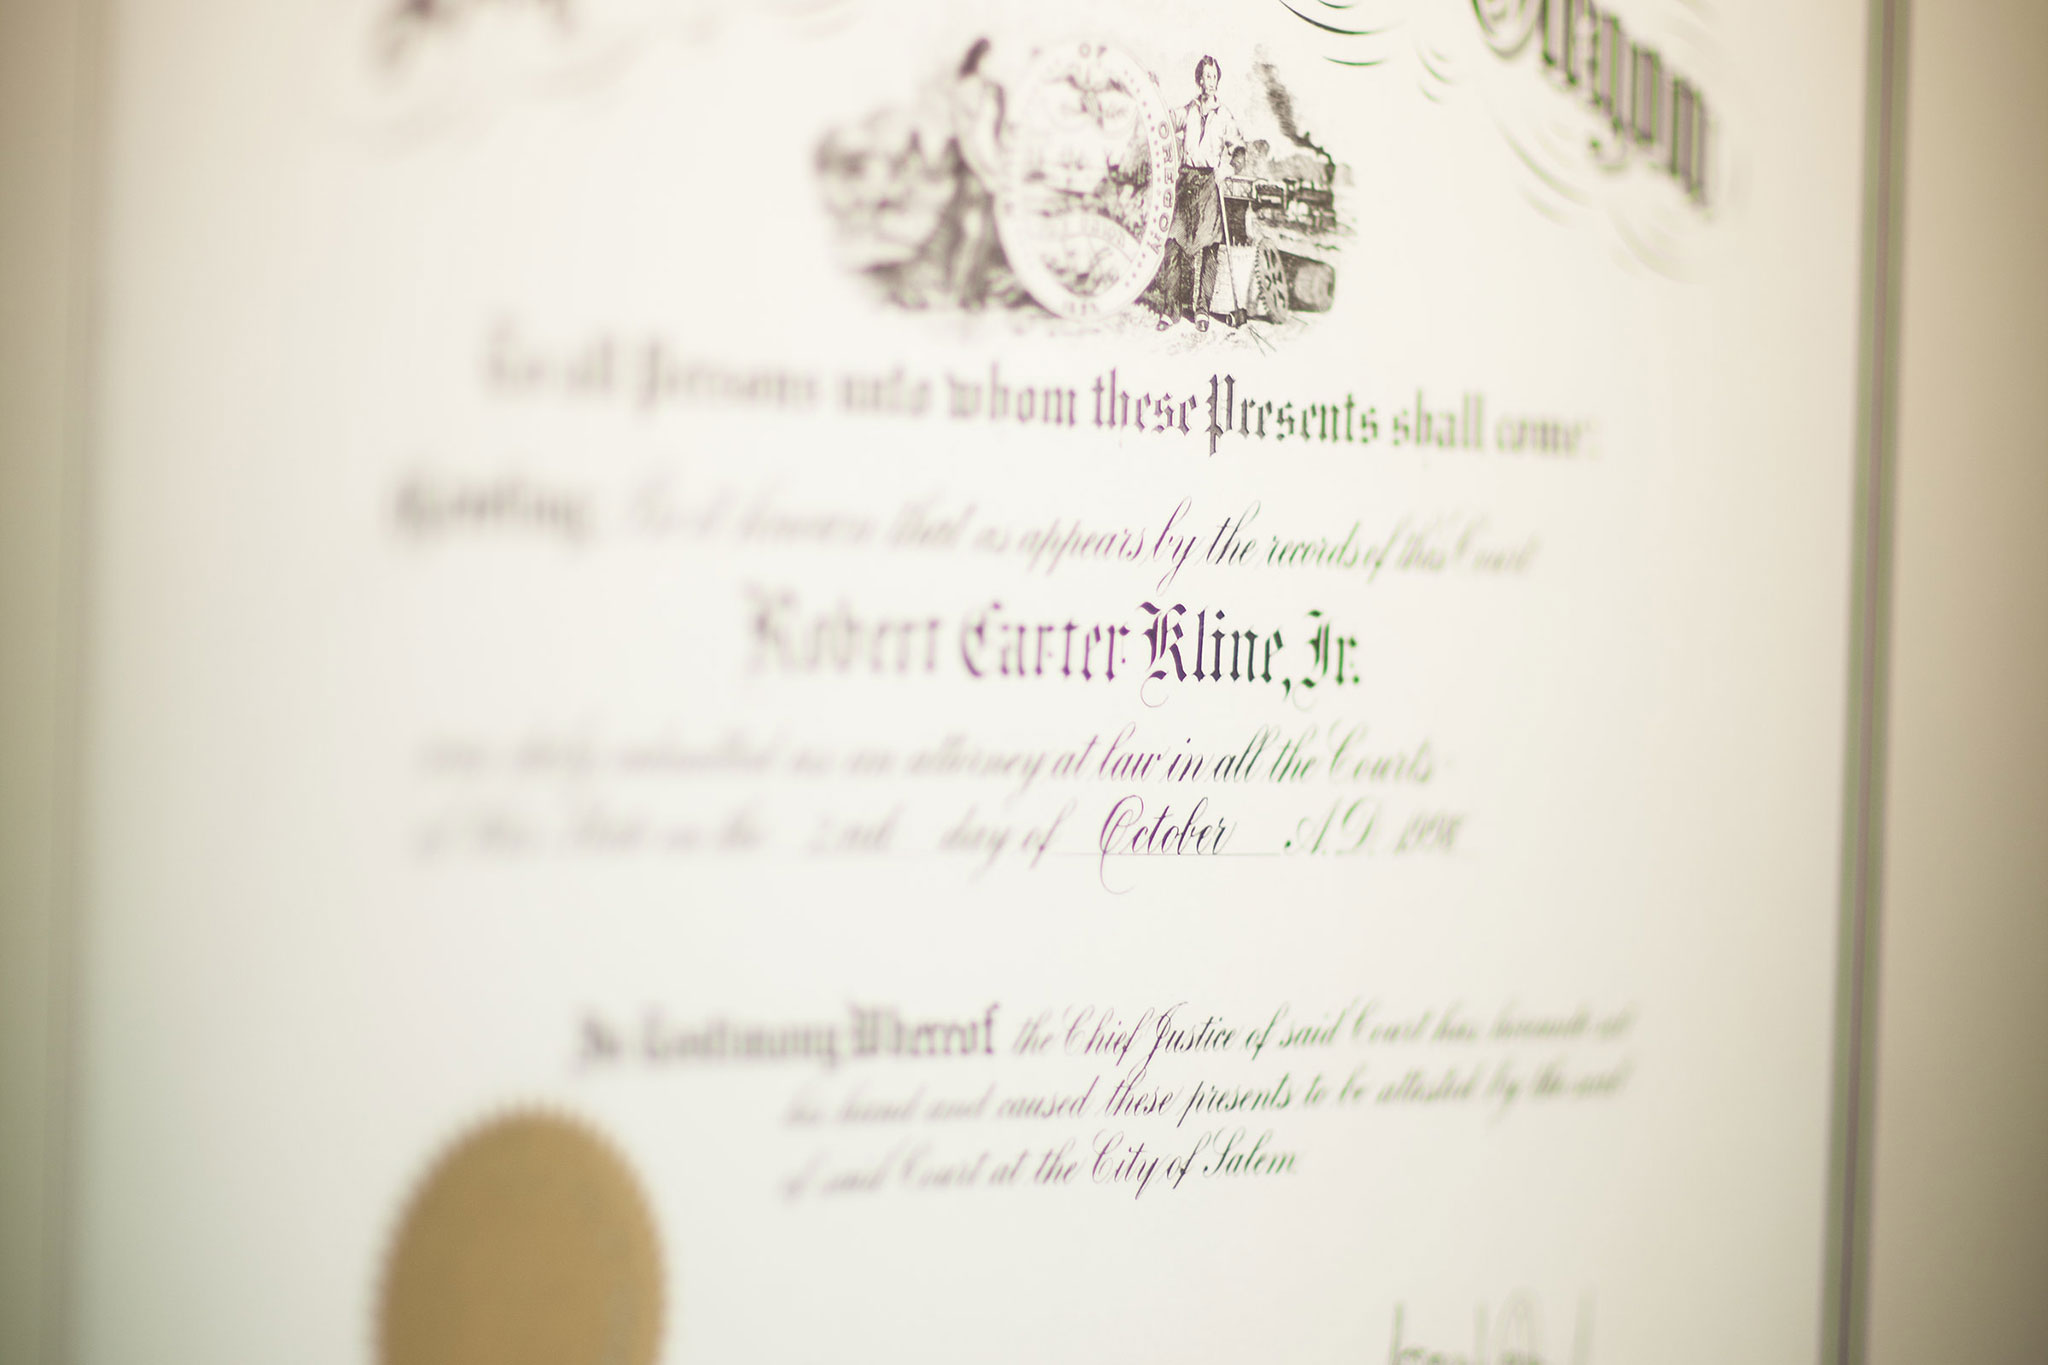 Oregon
OF OREGON
1859
To all Persons unto whom these Presents shall come:
Greeting. Be it known that as appears by the records of this Court
Robert Carter Kline, Jr.
was duly admitted as an attorney at law in all the Courts
of this State on the 2nd day of October A.D. 1998
In Testimony Whereof the Chief Justice of said Court has hereunto set
his hand and caused these presents to be attested by the seal
of said Court at the City of Salem